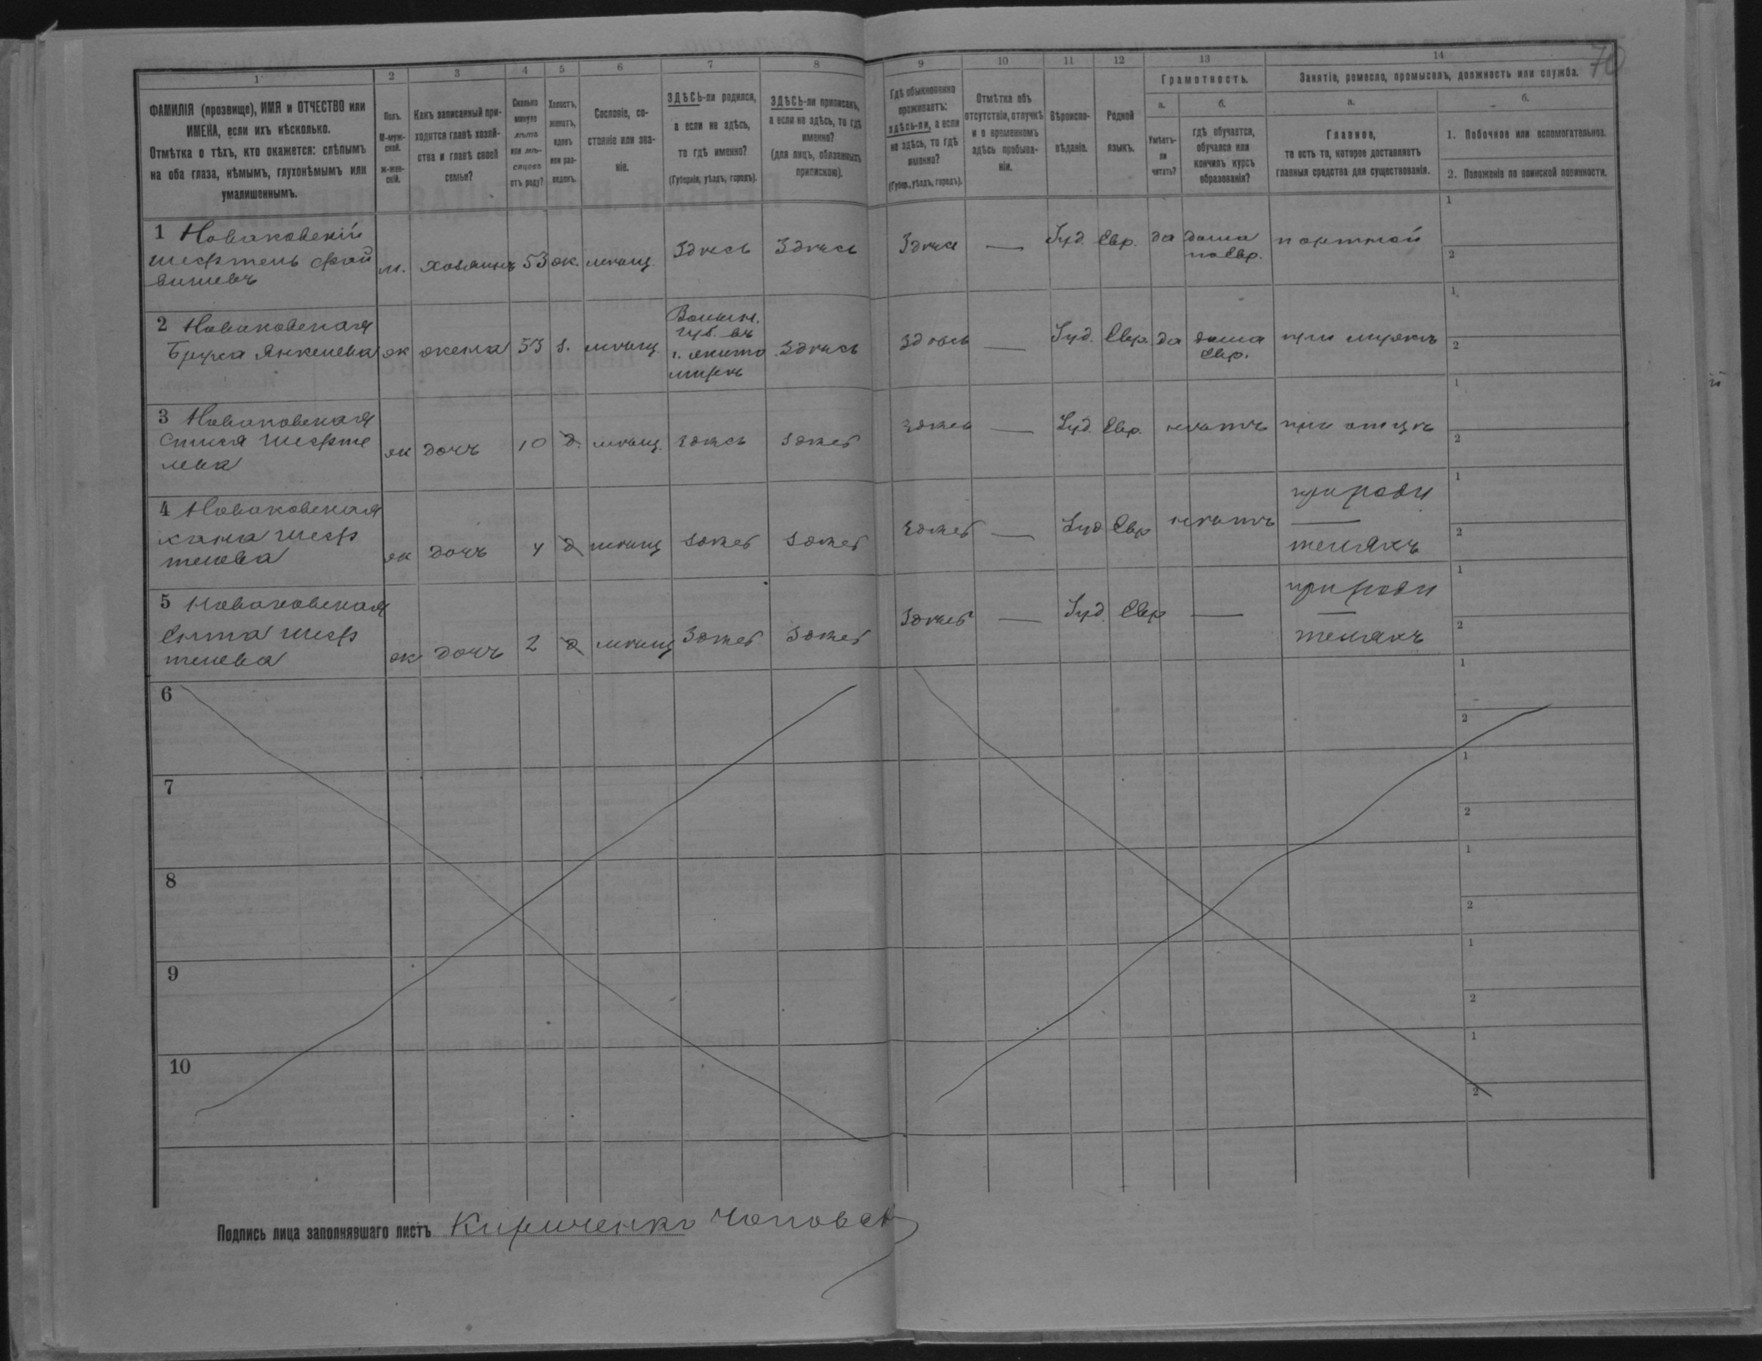 70
1 2 3 4 5 6 7 8 9 10 11 12 13 14
ФАМИЛІЯ (прозвище), ИМЯ и ОТЧЕСТВО или
ИМЕНА, если ихъ нѣсколько.
Отмѣтка о тѣхъ, кто окажется: слѣпымъ
на оба глаза, нѣмымъ, глухонѣмымъ или
умалишеннымъ.
Полъ.
М-муж-
ской.
Ж-жен-
скій.
Какъ записанный при-
ходится главѣ хозяй-
ства и главѣ своей
семьи?
Сколько
минуло
лѣтъ
или мѣ-
сяцевъ
отъ роду?
Холостъ,
женатъ,
вдовъ
или раз-
веденъ.
Сословіе, со-
стояніе или зва-
ніе.
ЗДѢСЬ-ли родился,
а если не здѣсь,
то гдѣ именно?
(Губернія, уѣздъ, городъ).
ЗДѢСЬ-ли приписанъ,
а если не здѣсь, то гдѣ
именно?
(для лицъ, обязанныхъ
припискою).
Гдѣ обыкновенно
проживаетъ:
здѣсь-ли, а если
не здѣсь, то гдѣ
именно?
(Губер., уѣздъ, городъ).
Отмѣтка объ
отсутствіи, отлучкѣ
и о временномъ
здѣсь пребыва-
ніи.
Вѣроиспо-
вѣданіе.
Родной
языкъ.
Грамотность.
а.
Умѣетъ-
ли
читать?
б.
гдѣ обучается,
обучался или
кончилъ курсъ
образованія?
Занятіе, ремесло, промыселъ, должность или служба.
а.
Главное,
то есть то, которое доставляетъ
главныя средства для существованія.
б.
1. Побочное или вспомогательное.
2. Положеніе по воинской повинности.
1 Новаковскій
Шефтель
м. хозяинъ 53 ж. мѣщ. Здѣсь Здѣсь Здѣсь — Іуд. Евр. да дома
по Евр.
портной
1
2
2 Новаковская
Бруха Янкелева
ж жена 53 з. мѣщ
Волын.
губ. въ
г. Жито
мирѣ
Здѣсь Здѣсь — Іуд. Евр да дома
Евр.
при мужѣ
1
2
3 Новаковская
Шефте
лева
ж дочь 10 д. мѣщ. здѣсь здѣсь здѣсь — Іуд. Евр. нѣтъ при отцѣ
1
2
4 Новаковская
Хана Шеф
телева
ж дочь 4 д мѣщ здѣсь здѣсь здѣсь — Іуд Евр нѣтъ
при роди
теляхъ
1
2
5 Новаковская
Шеф
телева
ж дочь 2 д мѣщ Здѣсь Здѣсь Здѣсь — Іуд. Евр —
при роди
теляхъ
1
2
6
1
2
7
1
2
8
1
2
9
1
2
10
1
2
Подпись лица заполнявшаго листъ Кириченко